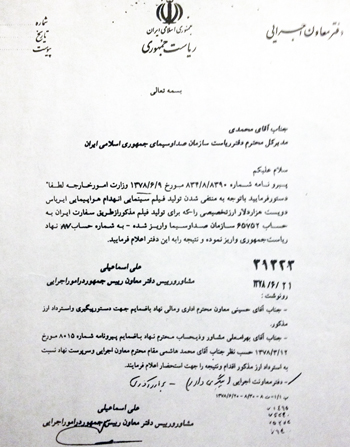 دفتر معاون اجرایی
جمهوری اسلامی ایران
ریاست جمهوری
شماره
تاریخ
پیوست
بسمه تعالی
جناب آقای محمدی
مدیرکل محترم دفتر ریاست سازمان صداوسیمای جمهوری اسلامی ایران
سلام علیکم
پیرو نامه شماره ۸۳۴/۸/۸۳۹۰ مورخ ۱۳۷۸/۶/۹ وزارت امورخارجه لطفا"
دستورفرمایید باتوجه به منتفی شدن تولید فیلم سینمایی انهدام هواپیمایی ایرباس
دویست هزاردلار ارزتخصیصی راکه برای تولید فیلم مذکورازطریق سفارت ایران به
حساب ۶۵۷۵۲ سازمان صداوسیما واریز شده - به شماره حساب نهاد
ریاست جمهوری واریز نموده و نتیجه رابه این دفتر اعلام فرمایید.
۲۹۲۲۲
۱۳۷۸/۶/۲۱
علی اسماعیلی
مشاورورییس دفتر معاون رییس جمهوردراموراجرایی
رونوشت :
- جناب آقای حسینی معاون محترم اداری ومالی نهاد باضمایم جهت دستورپیگیری واسترداد ارز
مذکور.
- جناب آقای بهراممعلی مشاور وذیحساب محترم نهاد باضمایم پیرونامه شماره ۸۰۱۵ مورخ
۱۳۷۸/۳/۱۲ حسب نظر جناب آقای محمد هاشمی مقام محترم معاون اجرایی وسرپرست نهاد نسبت
به استرداد ارز مذکور اقدام ونتیجه را جهت استحضار اعلام فرمایند.
- دفتر معاونت اجرایی
علی اسماعیلی
مشاورورییس دفتر معاون رییس جمهوردرامور اجرایی